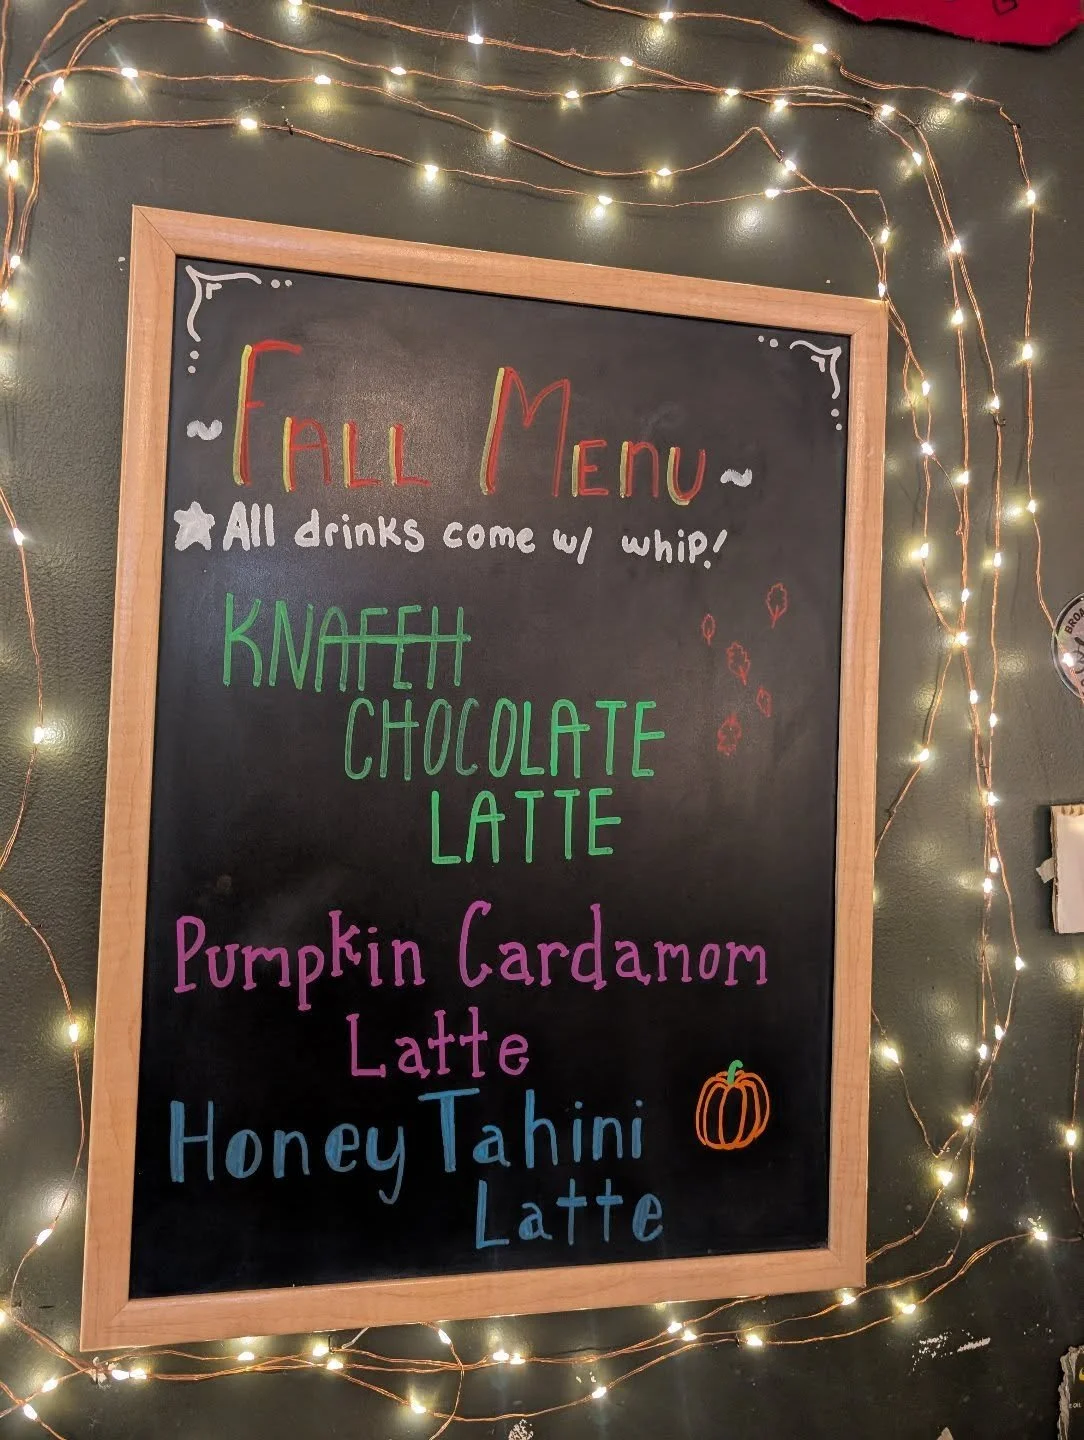 ~ FALL MENU ~
★ All drinks come w/ whip!
KNAFEH
CHOCOLATE
LATTE
Pumpkin Cardamom
Latte
Honey Tahini
Latte